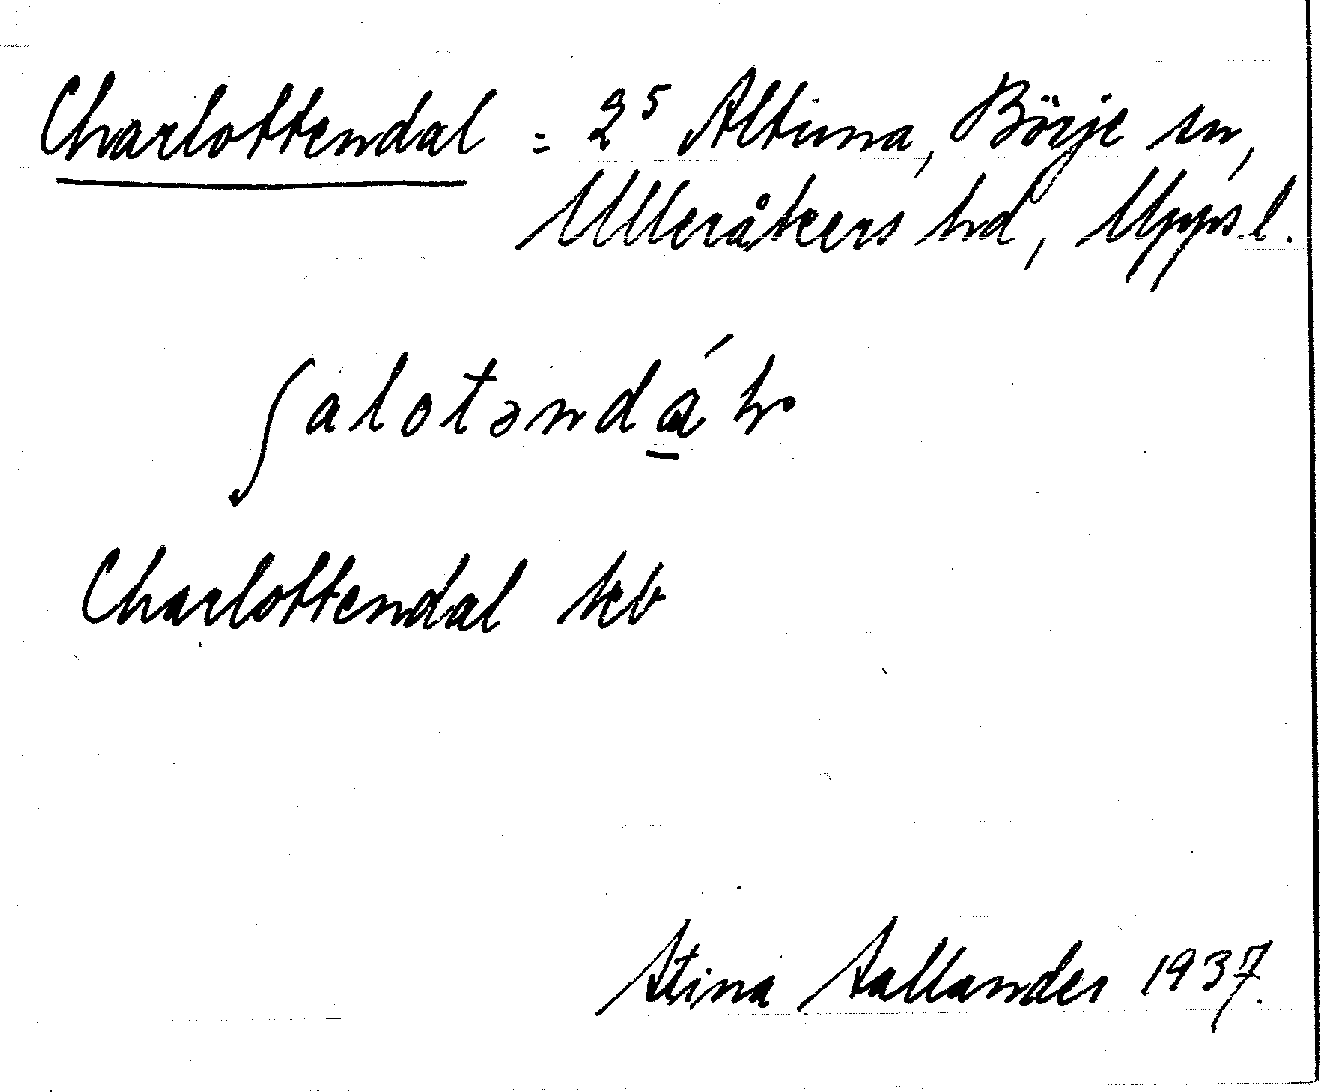 Charlottendal = 2⁵ Altuna, Börje sn,
Ulleråkers hd, Uppsl.
Charlottendal kb
Stina Sallander 1937.